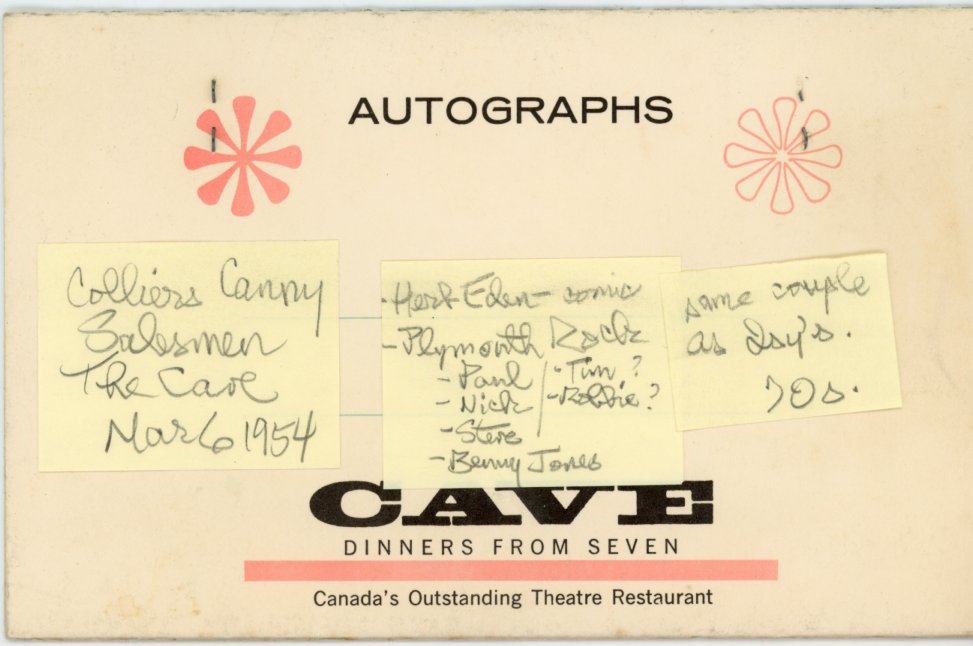 AUTOGRAPHS
Colliers Canny
Salesmen
The Cave
Mar 6 1954
- Herb Eden - comic
- Plymouth Rock
- Paul / - Tim?
- Nick / - Robbie?
- Steve
- Benny Jones
same couple
as Isy's.
70s.
CAVE
DINNERS FROM SEVEN
Canada's Outstanding Theatre Restaurant